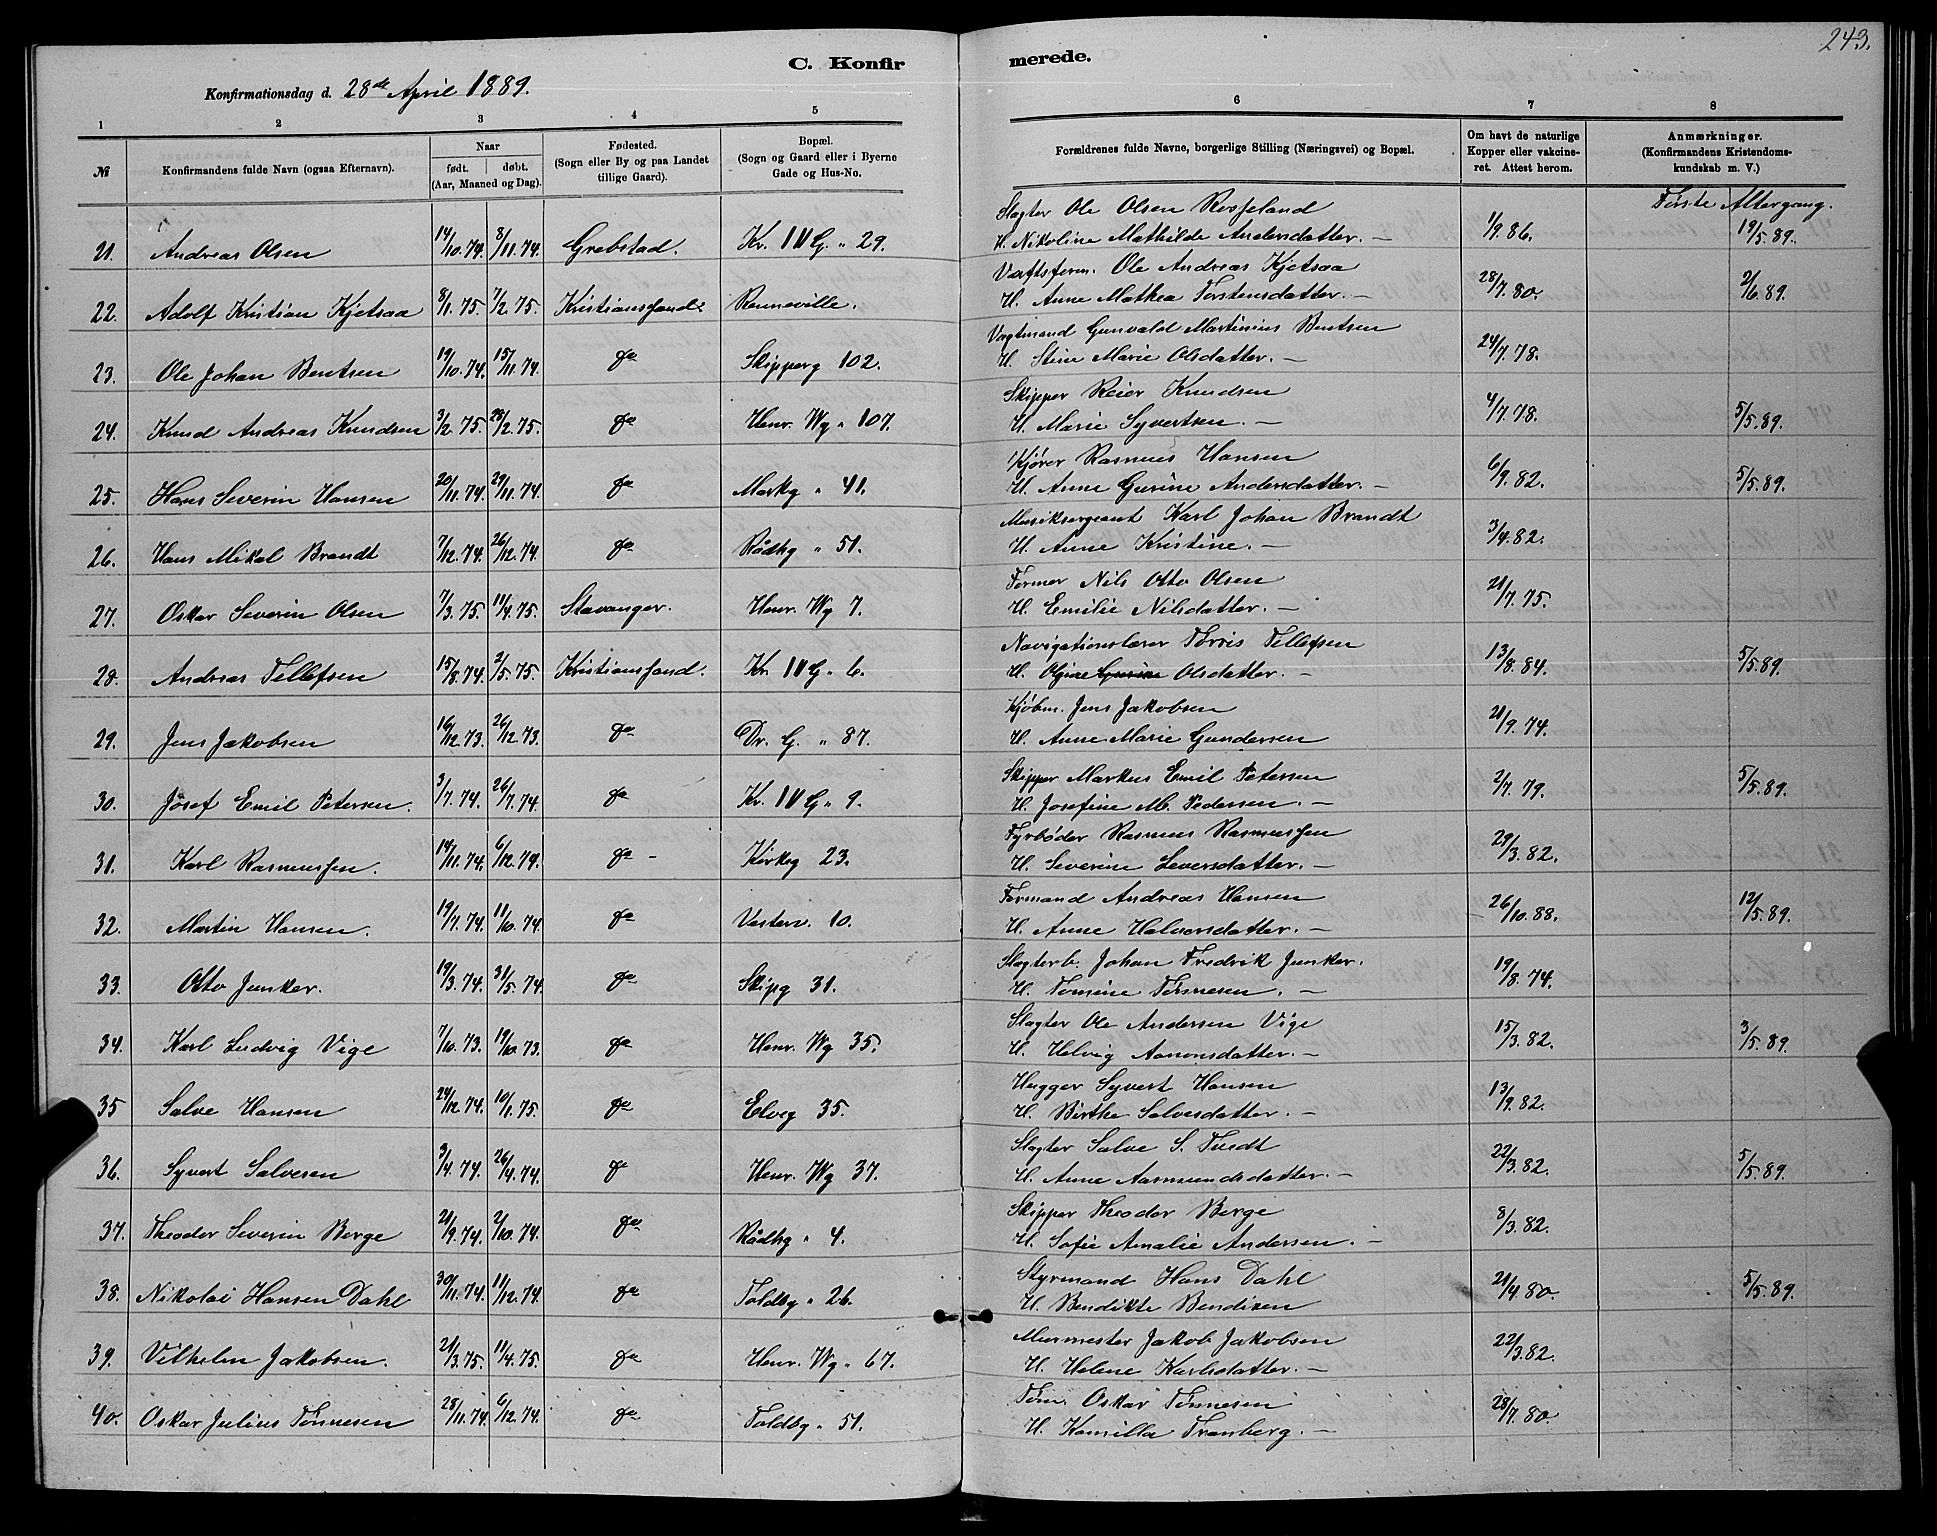 243.
C. Konfirmerede.
Konfirmationsdag d. 28de April 1889.
1 2 3 4 5 6 7 8
№ Konfirmandens fulde Navn (ogsaa Efternavn). Naar født. døbt. (Aar, Maaned og Dag). Fødested. (Sogn eller By og paa Landet tillige Gaard). Bopæl. (Sogn og Gaard eller i Byerne Gade og Hus-No. Forældrenes fulde Navne, borgerlige Stilling (Næringsvei) og Bopæl. Om havt de naturlige Kopper eller vakcineret. Attest herom. Anmærkninger. (Konfirmandens Kristendomskundskab m. V.)
Første Altergang.
21. Andreas Olsen 14/10.74. 8/11.74. Grebstad. Kr. IV G. " 29. Slagter Ole Olsen Rosseland
H. Nikoline Mathilde Andersdatter. — 1/9 86. 19/5.89.
22. Adolf Kristian Kjetsaa 8/1.75. 7/2.75. Kristianssand. Ronneville. Værftsform. Ole Andreas Kjetsaa
H. Anne Mathea Torstensdatter. — 28/7.80. 2/6.89.
23. Ole Johan Bentsen 19/10.74. 15/11.74. do Skipperg 102. Vagtmand Gunvald Martinius Bentsen
H. Stine Marie Olsdatter. — 24/7.78.
24. Knud Andreas Knudsen 3/2.75. 28/2.75. do Henr. Wg " 107. Skipper Reier Knudsen
H. Marie Syvertsen. — 4/7.78. 5/5.89.
25. Hans Severin Hansen 20/11.74. 29/11.74. do Markg " 41. Kjører Rasmus Hansen
H. Anne Gurine Andersdatter. — 6/9.82. 5/5.89.
26. Hans Mikal Brandt 7/12.74. 26/12.74. do Rådhg " 51. Musiksergeant Karl Johan Brandt
H. Anne Kristine. — 3/4.82.
27. Oskar Severin Olsen 7/3.75. 11/4.75. Stavanger. Henr. Wg 7. Former Nils Otto Olsen
H. Emilie Nilsdatter. — 21/7.75.
28. Andreas Tellefsen 15/8.74. 2/5.75. Kristianssand. Kr. IV G " 6. Navigationslærer Torris Tellefsen
H. Olsdatter. — 13/8.84. 5/5.89.
29. Jens Jakobsen 16/12.73. 26/12.73. do Dr. G. " 87. Kjøbm. Jens Jakobsen
H. Anne Marie Gundersen 21/9.74.
30. Josef Emil Petersen. 3/7.74. 26/7.74. do Kr. IV G " 9. Skipper Markus Emil Petersen
H. Josefine M. Pedersen. — 2/7.79. 5/5.89.
31. Karl Rasmussen. 19/11.74. 6/12.74. do - Kirkeg 23. Fyrbøder Rasmus Rasmussen
H. Severine Seversdatter. — 29/3.82.
32. Martin Hansen. 19/7.74. 11/10.74. do Vesterv. 10. Formand Andreas Hansen
H. Anne Halvorsdatter. — 26/10.88. 12/5.89.
33. Otto Junker. 19/3.74. 31/5.74. do Skipg 31. Slagterb. Johan Fredrik Junker.
H. Tomine Tønnesen. — 19/8.74.
34. Karl Ludvig Vige 7/10.73. 19/10.73. do Henr. Wg 35. Slagter Ole Andersen Vige
H. Helvig Aanonsdatter. — 15/3.82. 3/5.89.
35 Salve Hansen 24/12.74. 10/1.75. do Elveg 35. Hugger Syvert Hansen
H. Birthe Salvesdatter. — 13/9.82.
36. Syvert Salvesen 3/4.74. 26/4.74. do Henr. Wg 37. Slagter Salve S. Tvedt
H. Anne Aasmundsdatter. — 22/3.82. 5/5.89.
37. Theodor Severin Berge 21/9.74. 2/10.74. do Rådhg " 4. Skipper Theodor Berge
H. Sofie Amalie Andersen. — 8/3.82.
38. Nikolai Hansen Dahl 30/11.74. 11/12.74. do Toldbg " 26. Styrmand Hans Dahl
H. Bendikte Bendixen 21/4.80. 5/5.89.
39. Vilhelm Jakobsen. 21/3.75. 11/4.75. do Henr. Wg " 67. Murmester Jakob Jakobsen
H. Helene Karlsdatter. — 22/3.82.
40. Oskar Julius Tønnesen 28/11.74. 6/12.74. do Toldbg " 51. Tøm. Oskar Tønnesen
H. Kamilla Tranberg. — 28/7.80.